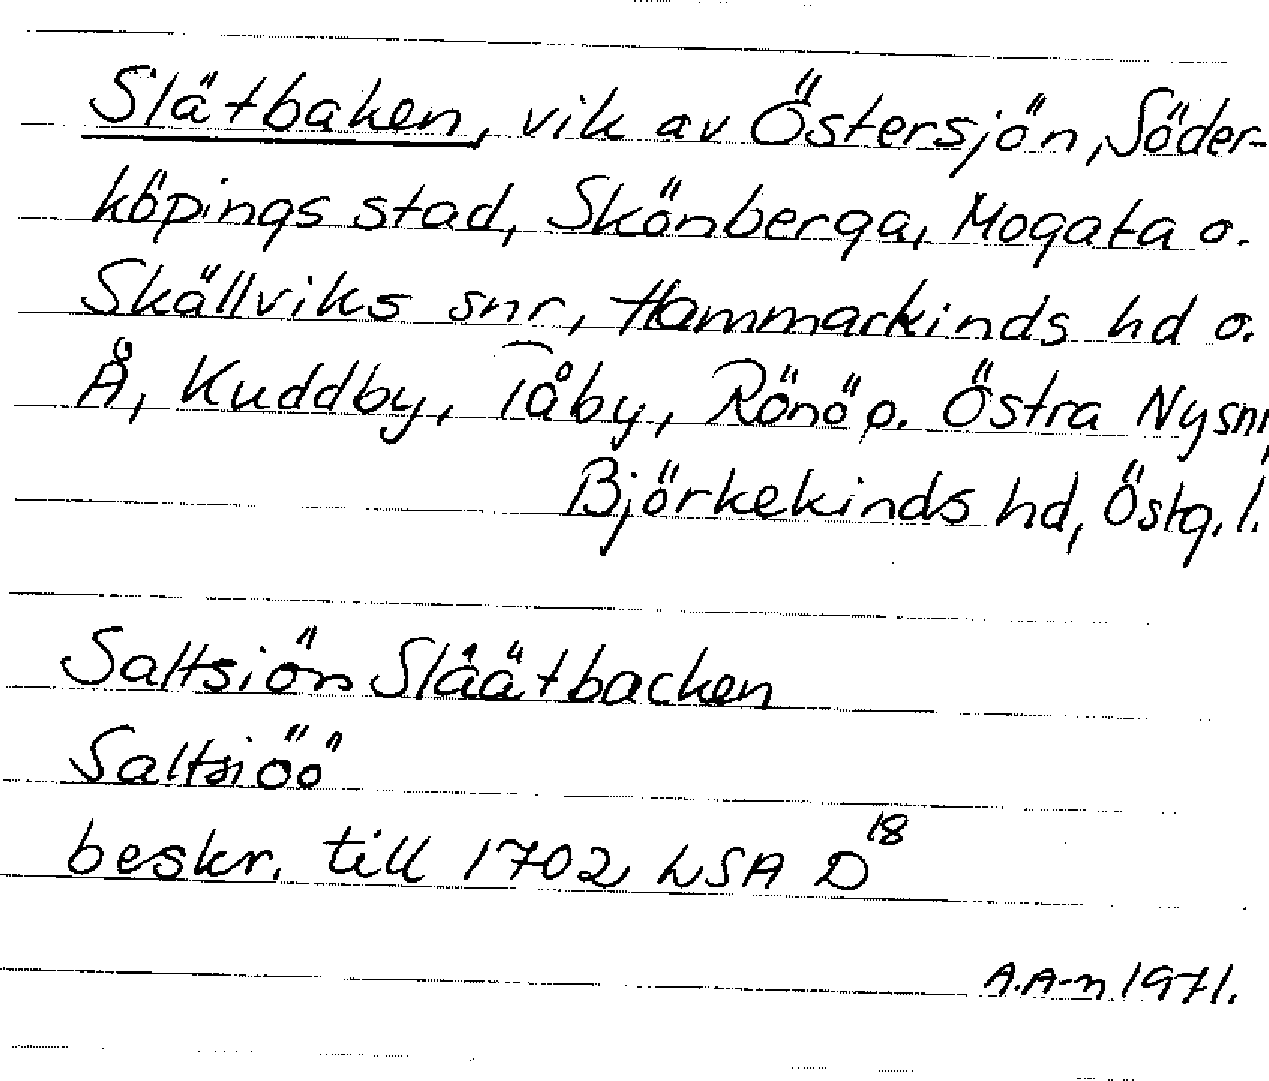 Slätbaken, vik av Östersjön, Söder-
köpings stad, Skönberga, Mogata o.
Skällviks snr, Hammarkinds hd o.
Å, Kuddby, Tåby, Rönö o. Östra Ny snr,
Björkekinds hd, Östg. l.
Saltsiön Slåätbacken
Saltsiöö
beskr. till 1702 LSA D 18
A.A-n 1971.